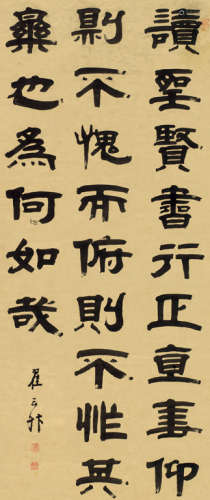 讀聖賢書行正直事仰
則不愧而俯則不怍其
樂也為何如哉
翟云升